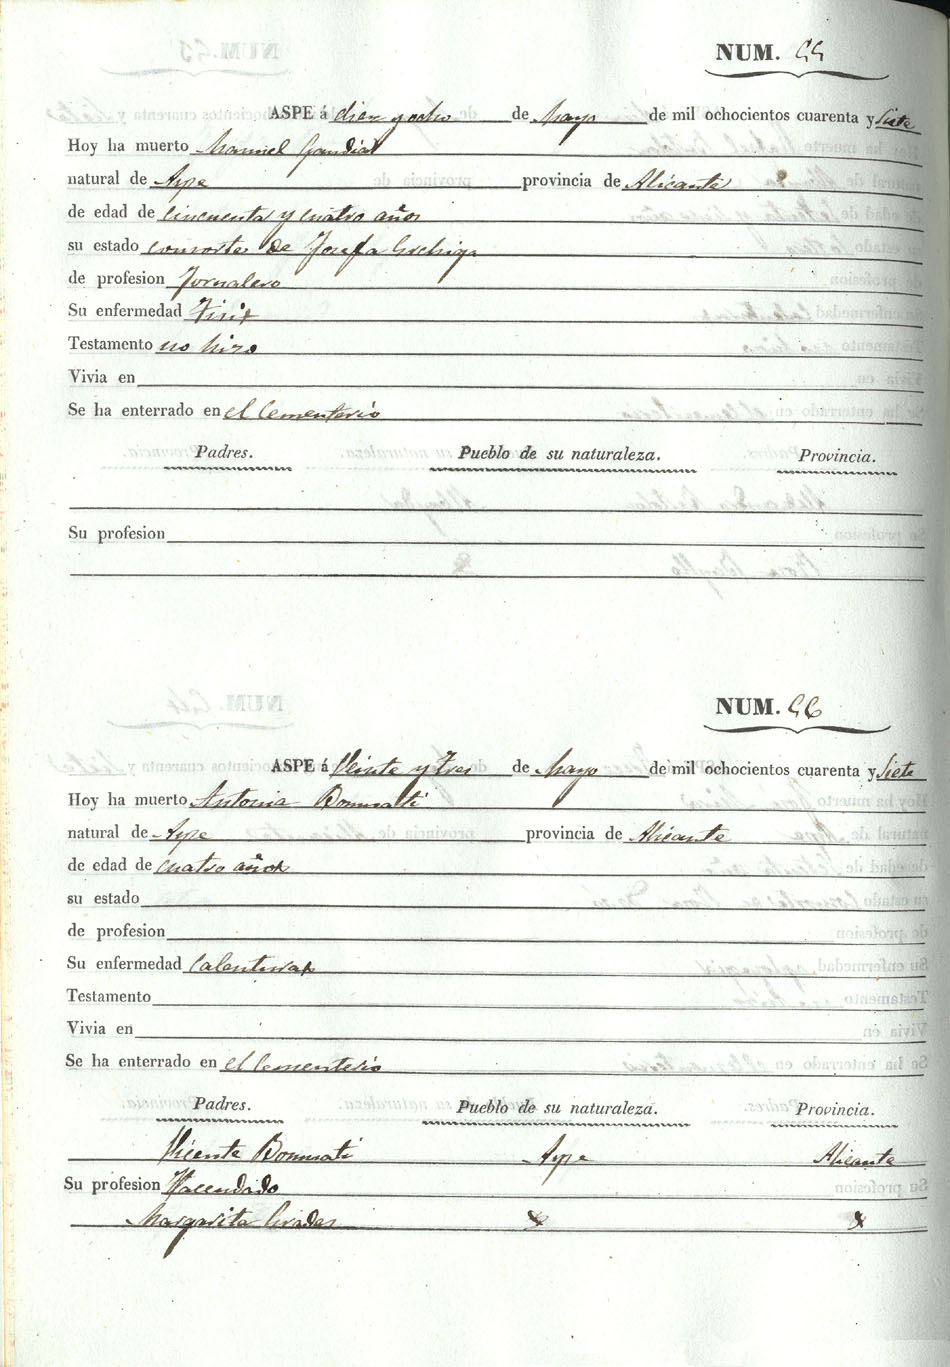 NUM. 55
ASPE á diez y ocho de Mayo de mil ochocientos cuarenta y Siete
Hoy ha muerto Manuel
natural de Aspe provincia de Alicante
de edad de cincuenta y cuatro años
su estado consorte de Josefa
de profesion Jornalero
Su enfermedad Tisis
Testamento no hizo
Vivia en
Se ha enterrado en el Cementerio
Padres. Pueblo de su naturaleza. Provincia.
Su profesion
NUM. 56
ASPE á Veinte y Tres de Mayo de mil ochocientos cuarenta y Siete
Hoy ha muerto Antonia Bonmati
natural de Aspe provincia de Alicante
de edad de cuatro años
su estado
de profesion
Su enfermedad Calenturas
Testamento
Vivia en
Se ha enterrado en el Cementerio
Padres. Pueblo de su naturaleza. Provincia.
Vicente Bonmati Aspe Alicante
Su profesion Hacendado
Margarita